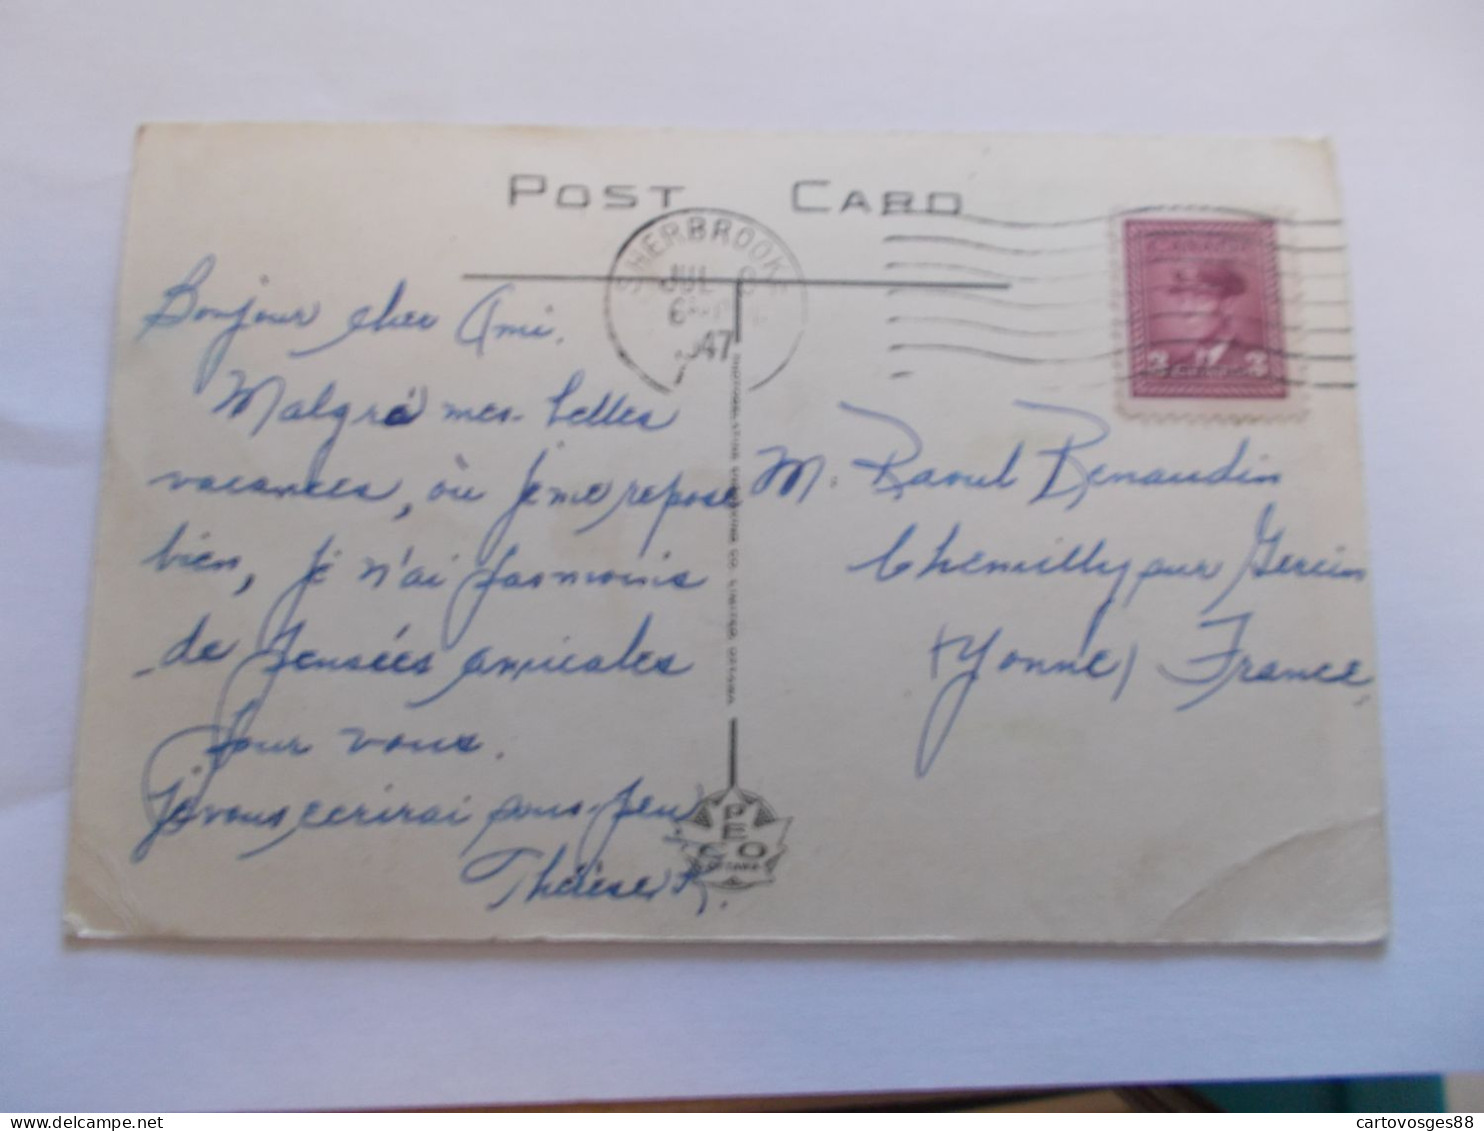 POST CARD
SHERBROOKE
JUL
1947
3 3
Bonjour cher Ami.
Malgré mes belles
vacances, où je me repose
bien, je n'ai pas moins
de pensées amicales
pour vous.
Je vous ecrirai sous-peu
Thérèse R.
M. Raoul Renaudin
Chemilly sur Serein
(Yonne) France
PHOTOGELATINE ENGRAVING CO. LIMITED, OTTAWA
PECO
OTTAWA
cartovosges88